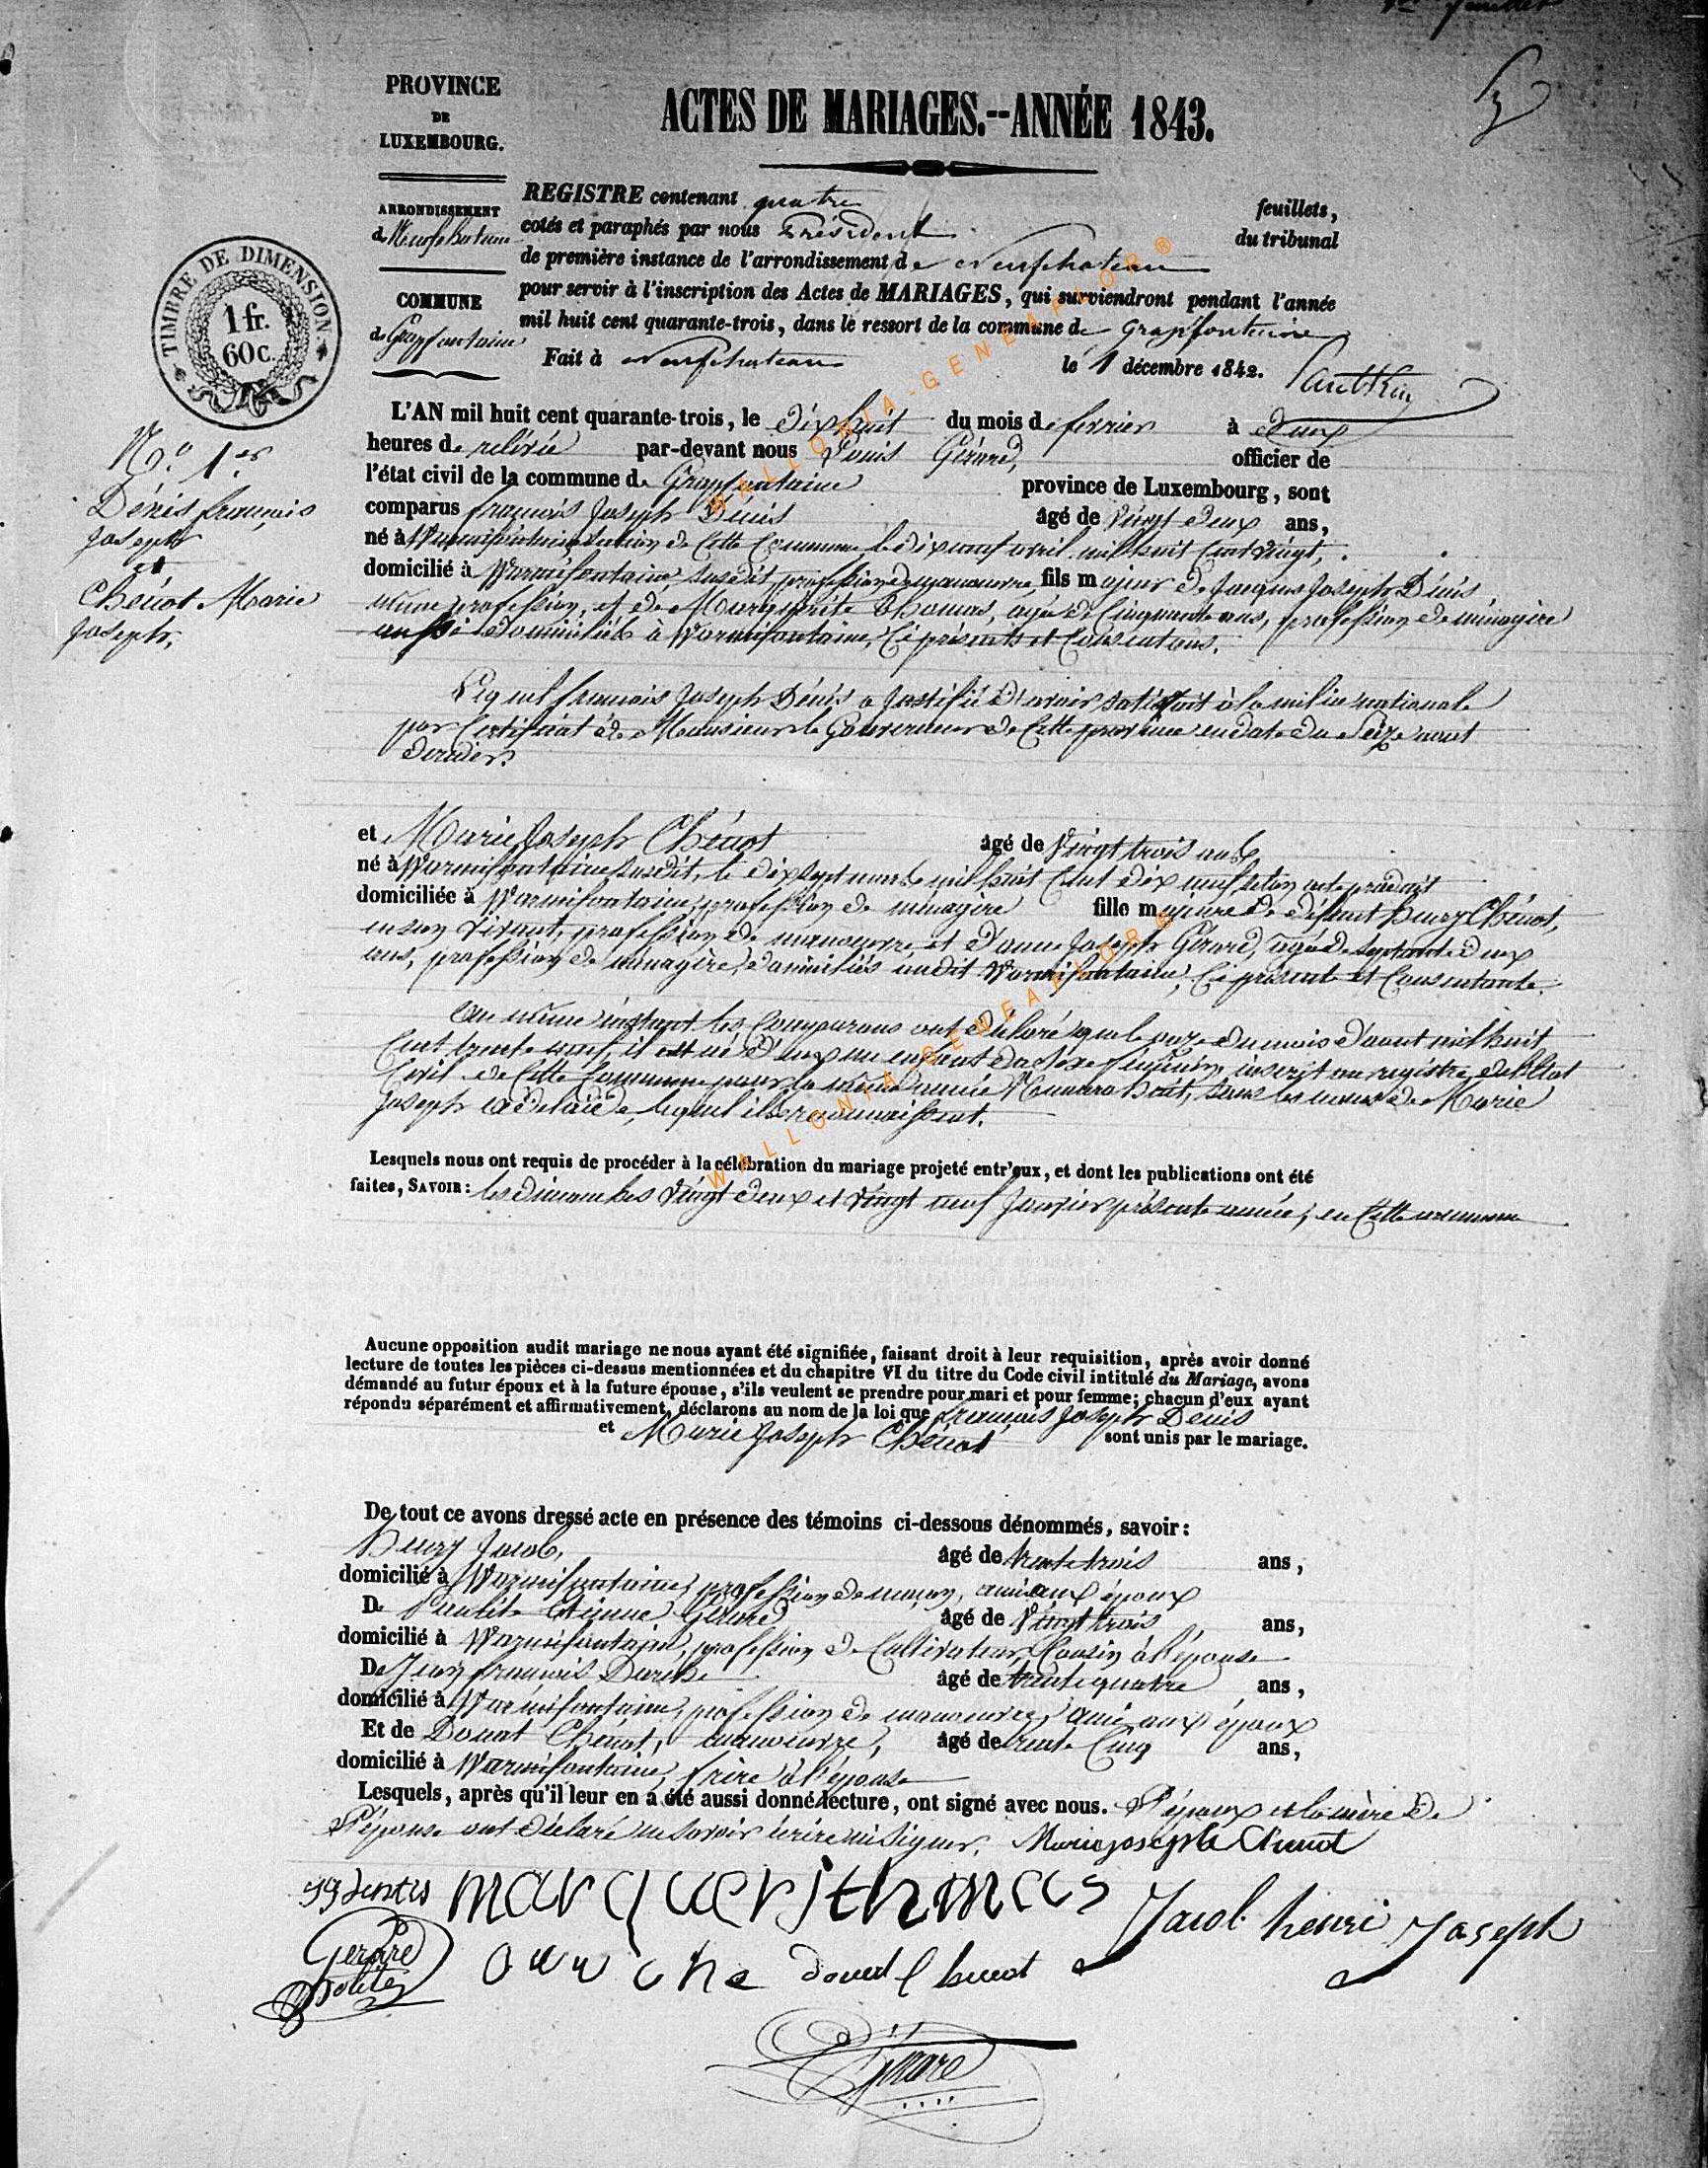 1er feuillet
PROVINCE
DE
LUXEMBOURG.
ACTES DE MARIAGES.--ANNÉE 1843.
ARRONDISSEMENT
de Neufchateau
COMMUNE
de Grapfontaine
TIMBRE DE DIMENSION.
1 fr.
60 c.
REGISTRE contenant quatre feuillets,
cotés et paraphés par nous Président du tribunal
de première instance de l'arrondissement de Neufchateau
pour servir à l'inscription des Actes de MARIAGES, qui surviendront pendant l'année
mil huit cent quarante-trois, dans le ressort de la commune de Grapfontaine
Fait à Neufchateau le 1 décembre 1842.
N.o 1er
Dénis François
Joseph
et
Chénot Marie
Joseph,
L'AN mil huit cent quarante-trois, le dixhuit du mois de fevrier à deux
heures de relévée par-devant nous Denis Gérard, officier de
l'état civil de la commune de Grapfontaine province de Luxembourg, sont
comparus François Joseph Dénis âgé de vingt deux ans,
né à Warmifontaine section de cette commune le dix neuf avril mil huit cent vingt,
domicilié à Warmifontaine susdit, profession de manoeuvre, fils majeur de Jacques Joseph Dénis,
même profession, et de Marguerite Thomas, agée de cinquante ans, profession de ménagère
aussi domiciliés à Warmifontaine, ci présents et consentans.
Lequel François Joseph Dénis a justifié d'avoir satisfait à la milice nationale
par certificat de Monsieur le Gouverneur de cette province en date du seize aout
dernier.
et Marie Joseph Chénot âgé de vingt trois ans
né à Warmifontaine susdit, le dix sept mars mil huit cent dix neuf selon acte produit
domiciliée à Warmifontaine profession de ménagère fille majeure de défunt Henry Chénot,
en son vivant, profession de manoeuvre, et d'anne Joseph Gérard, agée de septante deux
ans, profession de ménagère, domiciliés audit Warmifontaine, ci présente et consentante.
Au même instant les comparans ont déclaré que le onze du mois d'aout mil huit
cent trente neuf, il est né d'eux un enfant du sexe féminin, inscrit au registre de l'Etat
Civil de cette commune pour la même année Numéro huit, sous les noms de Marie
Joseph adelaïde, lequel ils reconnaissent.
Lesquels nous ont requis de procéder à la célébration du mariage projeté entr'eux, et dont les publications ont été
faites, SAVOIR: les dimanches vingt deux et vingt neuf Janvier présente année, en cette commune
Aucune opposition audit mariage ne nous ayant été signifiée, faisant droit à leur requisition, après avoir donné
lecture de toutes les pièces ci-dessus mentionnées et du chapitre VI du titre du Code civil intitulé du Mariage, avons
démandé au futur époux et à la future épouse, s'ils veulent se prendre pour mari et pour femme; chacun d'eux ayant
répondu séparément et affirmativement, déclarons au nom de la loi que François Joseph Denis
et Marie Joseph Chénot sont unis par le mariage.
De tout ce avons dressé acte en présence des témoins ci-dessous dénommés, savoir:
Henry Jacob, âgé de trente trois ans,
domicilié à Warmifontaine, profession de maçon, ami aux époux
De Etienne Gérard âgé de vingt trois ans,
domicilié à Warmifontaine, profession de cultivateur, cousin à l'épouse
De Jean François âgé de trente quatre ans,
domicilié à Warmifontaine, profession de manoeuvre, ami aux époux
Et de Donat Chénot, manoeuvre, âgé de trente cinq ans,
domicilié à Warmifontaine, frère à l'épouse
Lesquels, après qu'il leur en a été aussi donné lecture, ont signé avec nous. L'époux et la mère de
l'épouse ont déclaré ne savoir écrire ni signer. Marie joseph Chenot
JJ Denis marguerithomas Jacob henri Joseph
Gerard
donat Chenot
Gérard
WALLONIA-GENEAFLOR®
WALLONIA-GENEAFLOR®